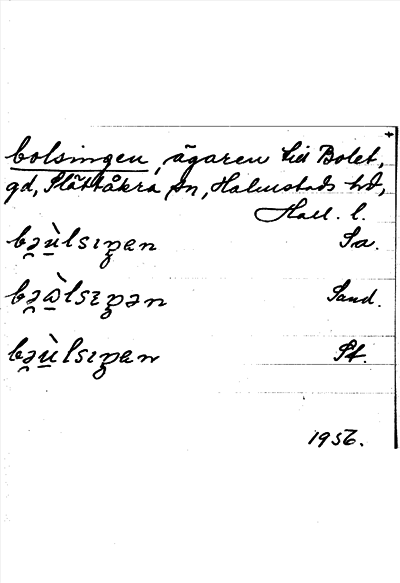 bolsingen, ägaren till Bolet,
gd, Slättåkra sn, Halmstads hd,
Hall. l.
bəù̠lsıŋen Sa.
bəὼ̠lsıŋən Sand.
bəù̠lsıŋen St.
1956.